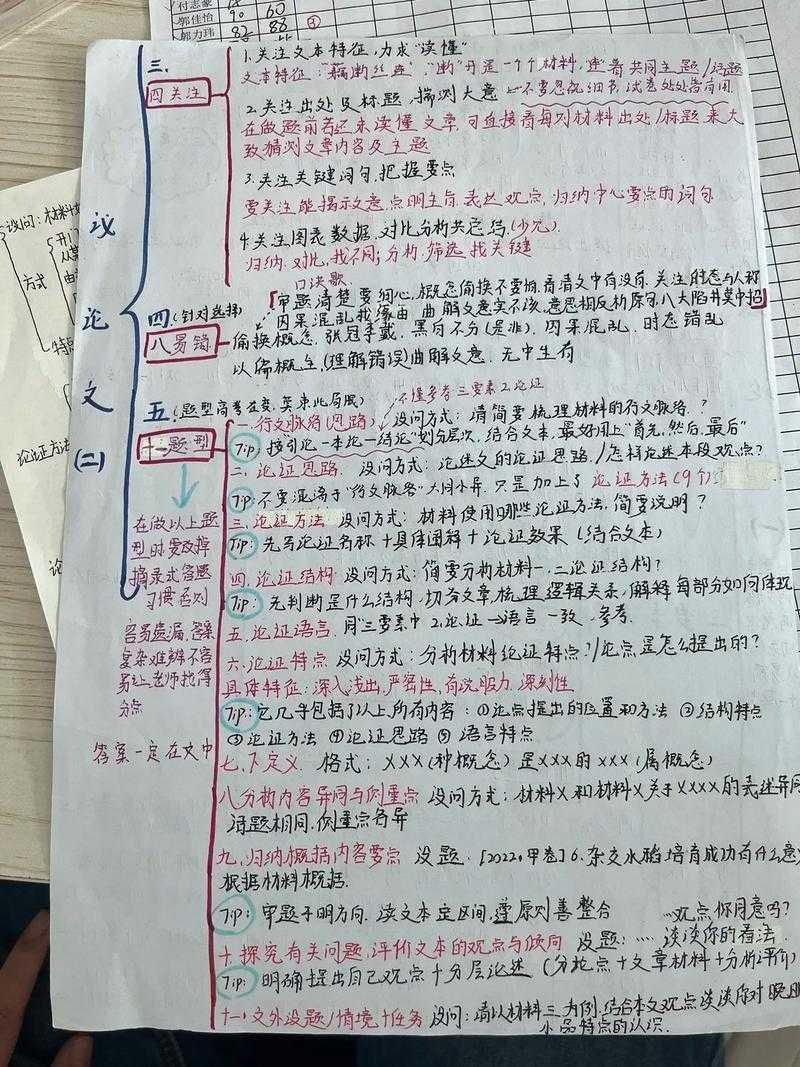 付志豪
郭佳怡 90 60
郭力玮 82 88
③
议论文(二)
三.
四关注
1.关注文本特征,力求“读懂”
文本特征:“藕断丝连”“断”开是一个个材料,连着共同主题/话题
2.关注出处及标题,揣测大意 不要忽视细节,试卷处处皆有用
在做题前若还未读懂文章,可直接看每则材料出处/标题来大
致猜测文章内容及主题
3.关注关键词句,把握要点
要关注能揭示文意,点明主旨,表达观点,归纳中心要点的词句
4.关注图表数据,对比分析共总结(少见)
归纳,对比,找不同;分析,筛选,找关键
口诀歌
四.(针对选择)
八易错
「审题清楚要细心,概念偷换不要怕,看清文中有没有,关注时态与人称
因果混乱找缘由 曲解文意实不该,意思相反析原因,八大陷井莫中招」
偷换概念,张冠李戴,黑白不分(是非),因果混乱,时态错乱
以偏概全,(理解错误)曲解文意,无中生有
五.(题型高考在变,莫束此局限)
十一题型
不懂参考三要素2.论证
一.行文脉络(思路) 设问方式:请简要梳理材料的行文脉络.?
Tip:按引论—本论—结论”划分层次,结合文本,最好用上“首先,然后,最后”
二.论证思路 设问方式:论述文的论证思路./怎样论述本段观点?
Tip:不要混淆于“行文脉络”大同小异.只是加上了论证方法(9个)
三.论证方法 设问方式:材料使用哪些论证方法,简要说明?
Tip:先写论证名称+具体阐释+论证效果(结合文本)
四.论证结构 设问方式:简要分析材料一,二论证结构?
Tip:先判断是什么结构,切分文章,梳理逻辑关系,解释每部分如何体现
五.论证语言 用“三要素中2.论证→语言一致,参考.
六.论证特点 设问方式:分析材料论证特点?/论点是怎么提出的?
具体特征:深入浅出,严密性,有说服力,深刻性
Tip:它几乎包括了以上所有内容:①论点提出的位置和方法 ②结构特点
③论证方法 ④论证思路 ⑤语言特点
七.下定义. 格式:XXX(种概念)是XXX的XXX(属概念)
八分析内容异同与侧重点 设问方式:材料X和材料X关于XXXX的表述异同
话题相同,侧重点各异
九.归纳概括内容要点 设题.[2022.甲卷]6.杂交水稻培育成功有什么意
根据材料概括.
Tip:审题干明方向.读文本定区间,遵原则善整合 …观点你同意吗?
十.探究有关问题,评价文本的观点与倾向 设题:…谈谈你的看法.
Tip:明确提出自己观点+分层论述(分论点+文章材料+分析评价)
十一.文外设题/情境+任务 设问:请以材料三为例.结合本文观点谈谈你对晚明
小品特点的认识.
在做以上题
型时要改掉
摘录式答题
习惯否则
容易遗漏,答案
复杂难辨不容
易让老师找得
分点
答案一定在文中
设问:材料
方式
特点
论证方法
论